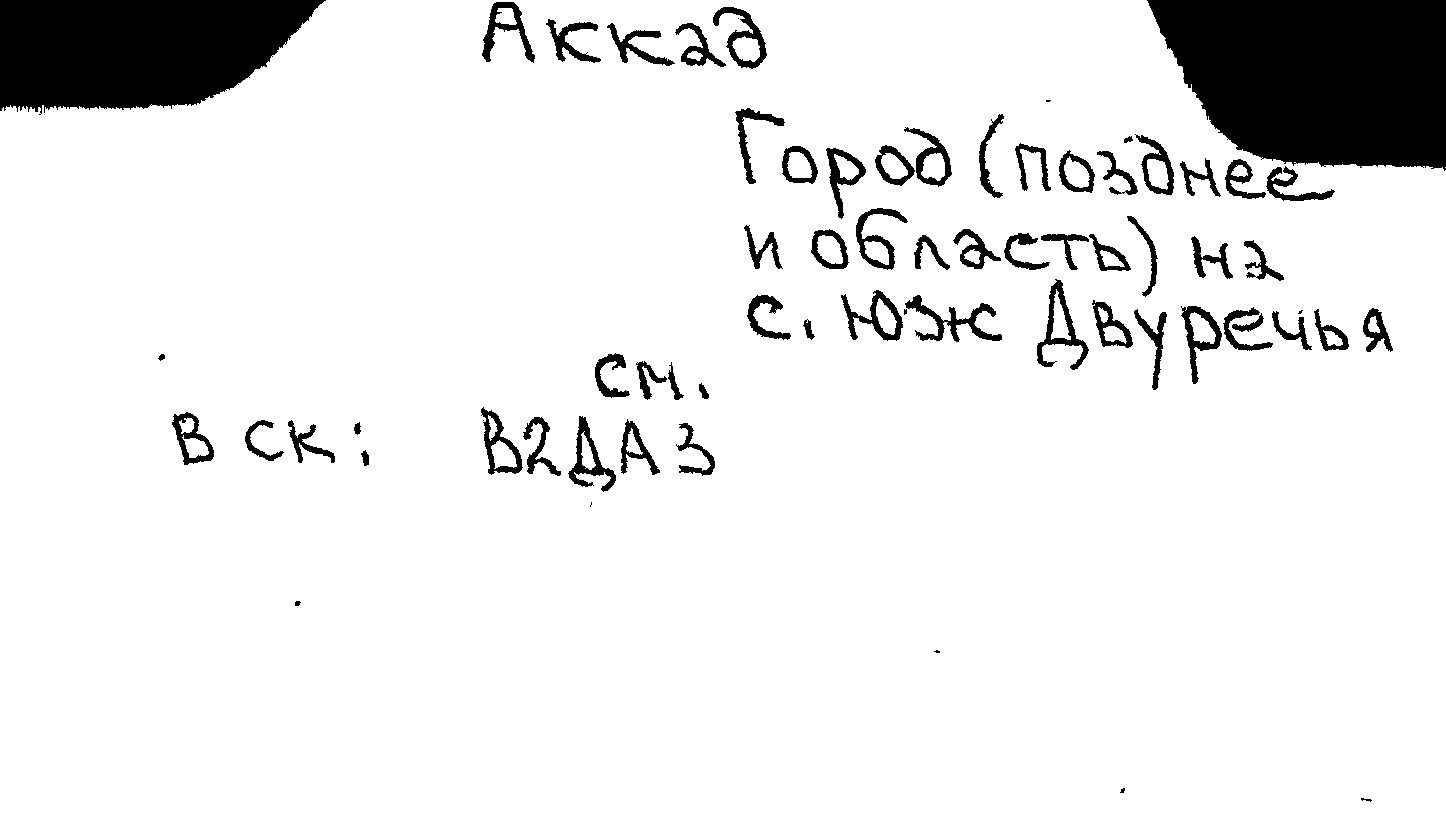 Аккад
Город (позднее
и область) на
с. Юж Двуречья
см.
В СК: В2ДАЗ